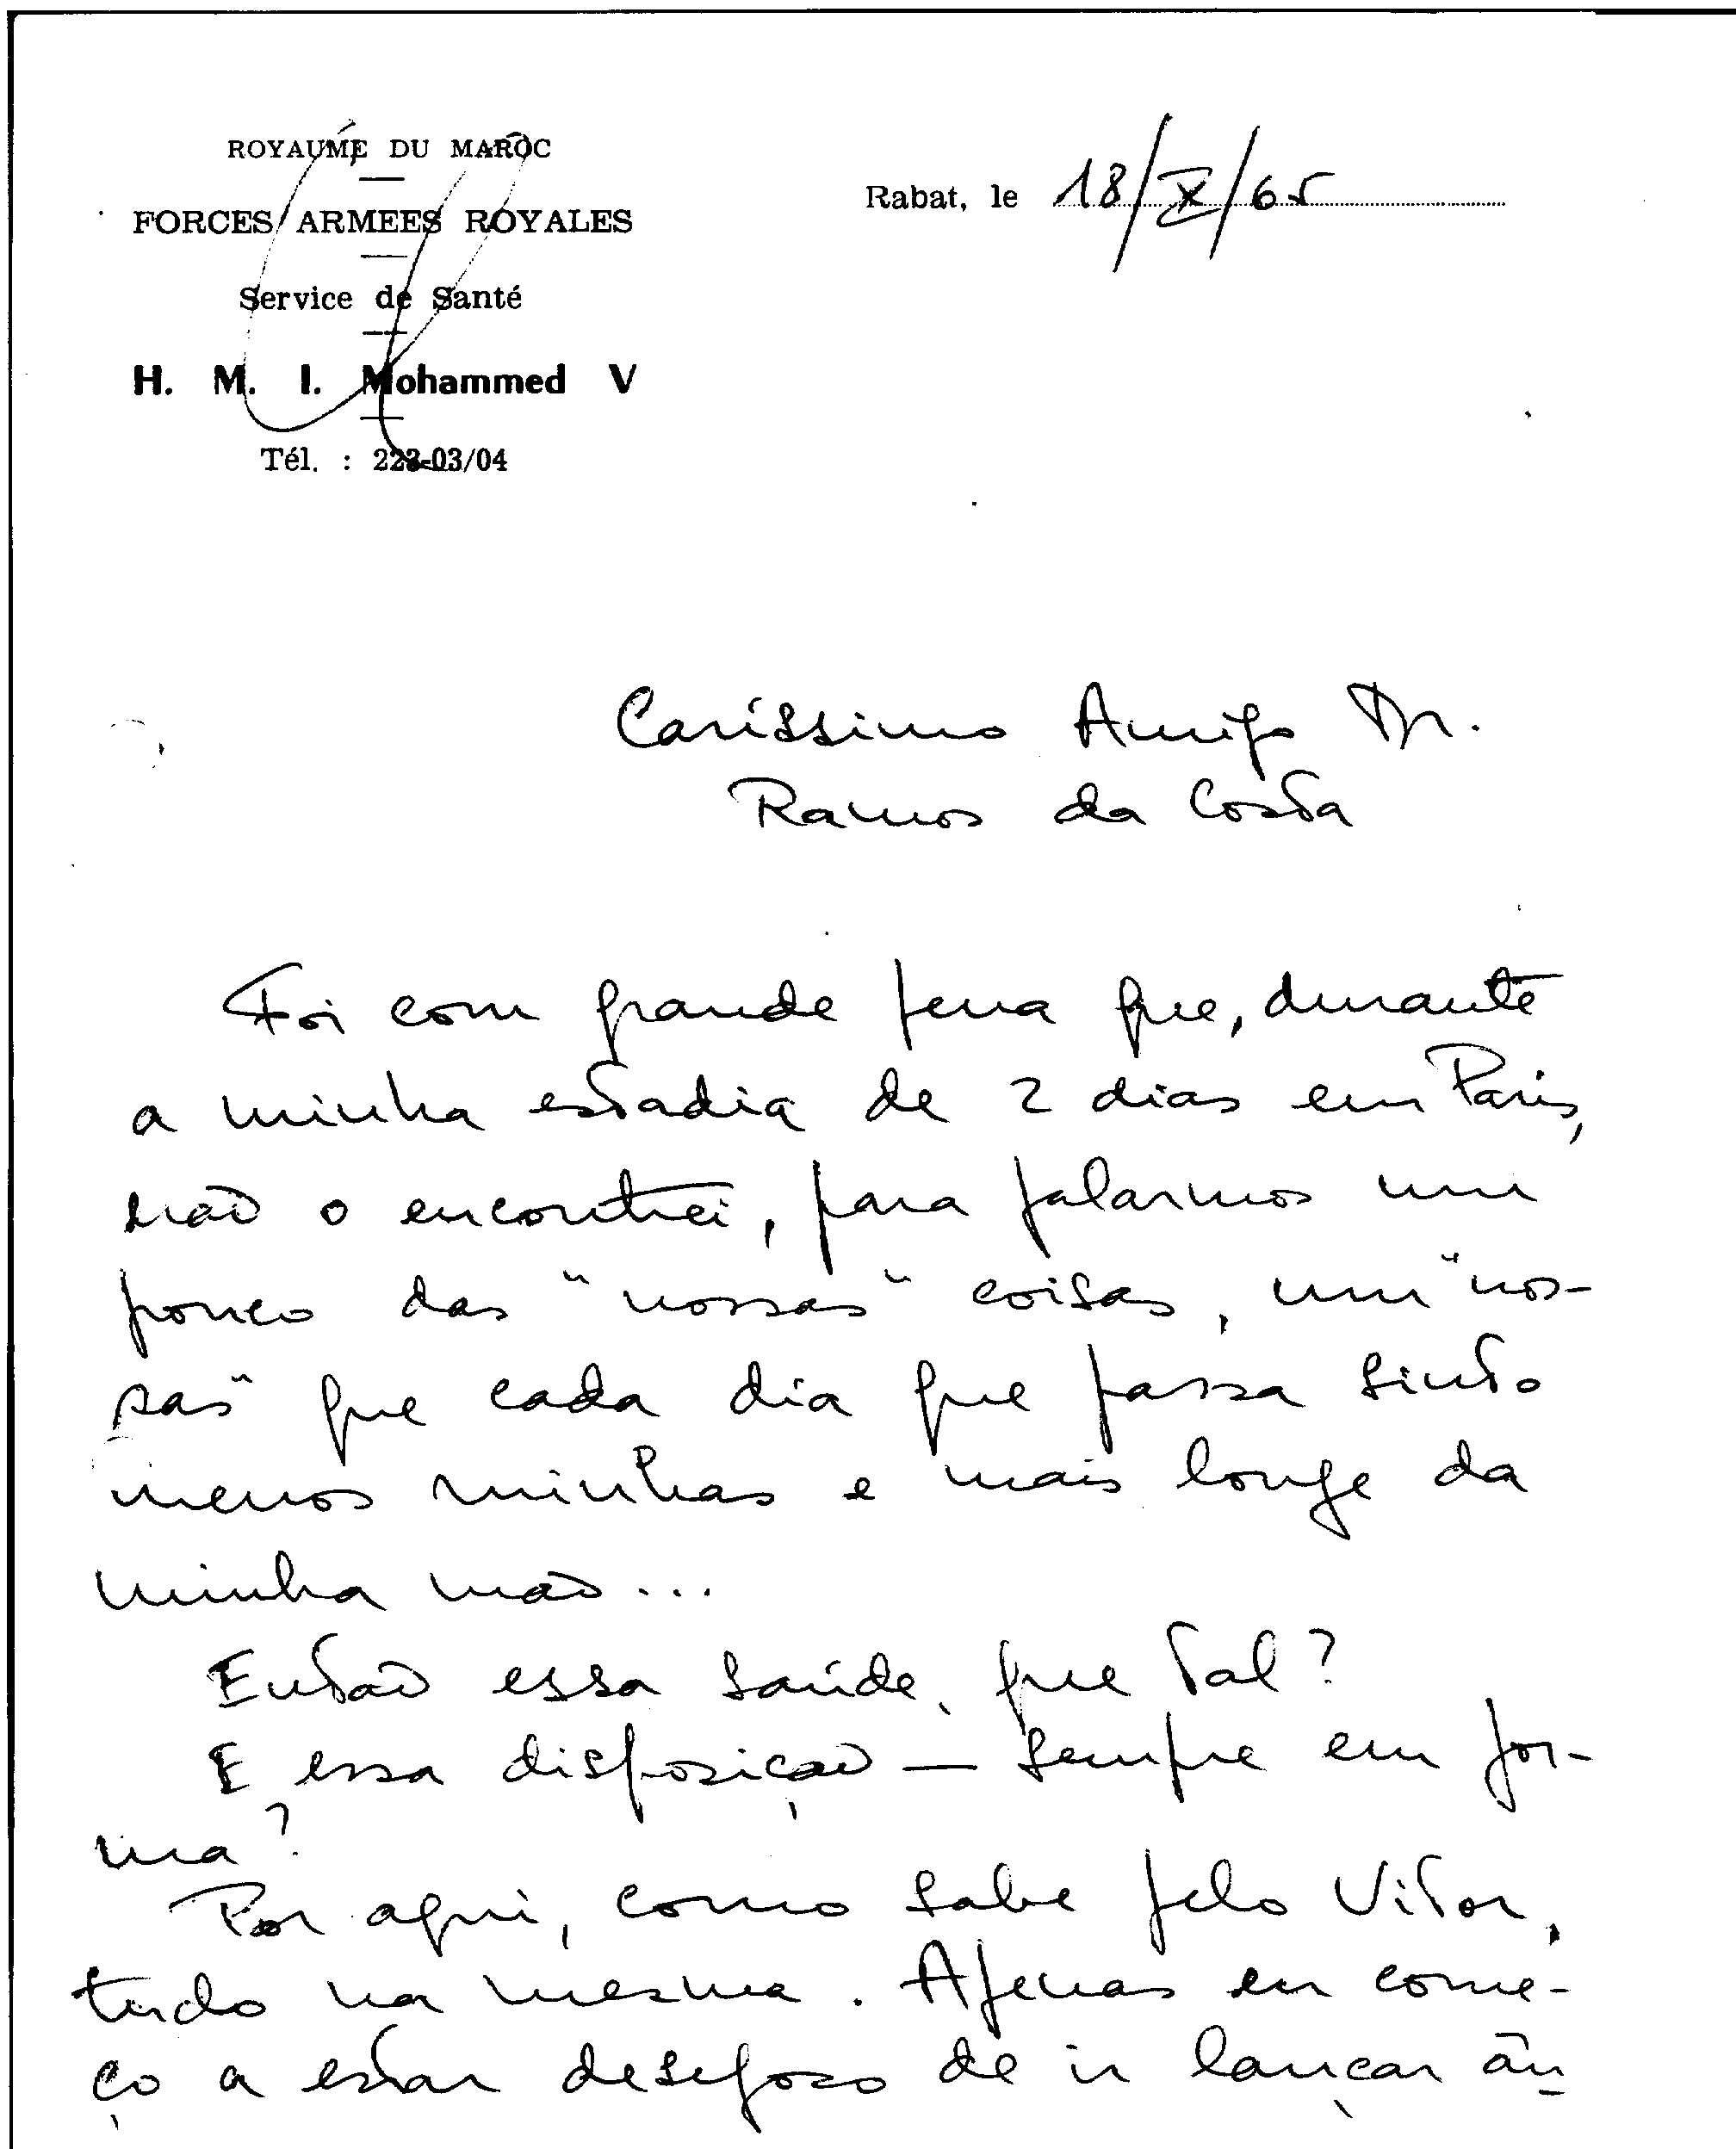 ROYAUME DU MAROC
FORCES ARMEES ROYALES
Service de Santé
H. M. I. Mohammed V
Tél. : 223-03/04
Rabat, le 18/X/65
Caríssimo Amigo Dr.
Ramos da Costa
Foi com grande pena que, durante
a minha estadia de 2 dias em Paris,
não o encontrei, para falarmos um
pouco das "nossas" coisas, um "nos-
sas" que cada dia que passa sinto
menos minhas e mais longe da
minha mão...
Então essa saúde, que tal?
E essa disposição — sempre em for-
ma?
Por aqui, como sabe pelo Vitor,
tudo na mesma. Apenas eu come-
ço a estar desejoso de ir lançar ân-